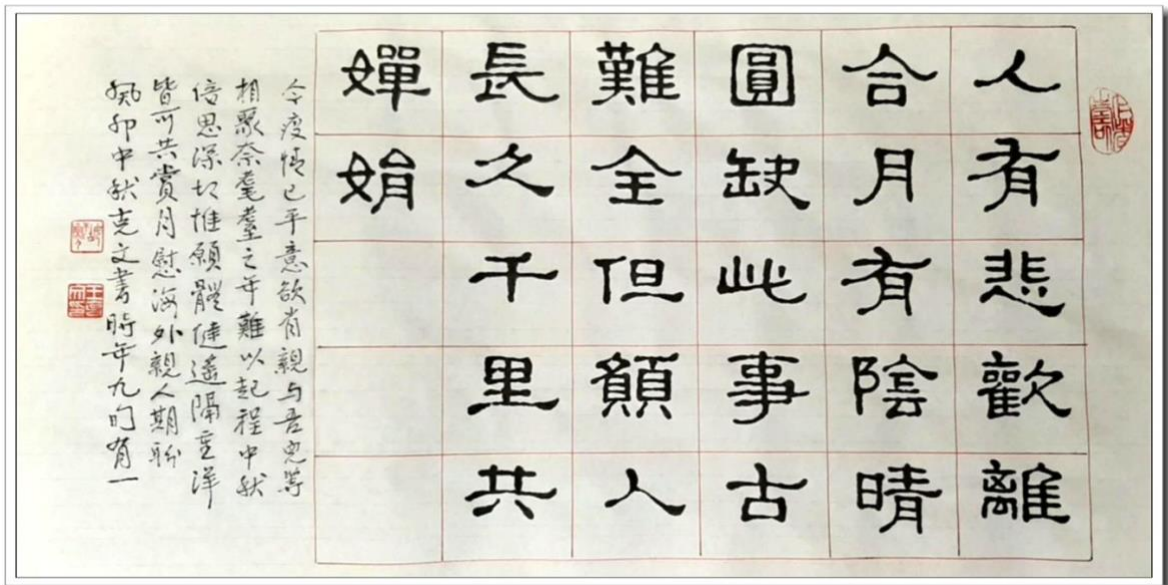 人有悲歡離
合月有陰晴
圓缺此事古
難全但願人
長久千里共
嬋娟
今疫情已平意欲省親与吾兒等
相聚奈耄耋之年難以起程中秋
倍思深切惟願體健遙隔重洋
皆可共賞月慰海外親人期盼
癸卯中秋克文書時年九旬有一